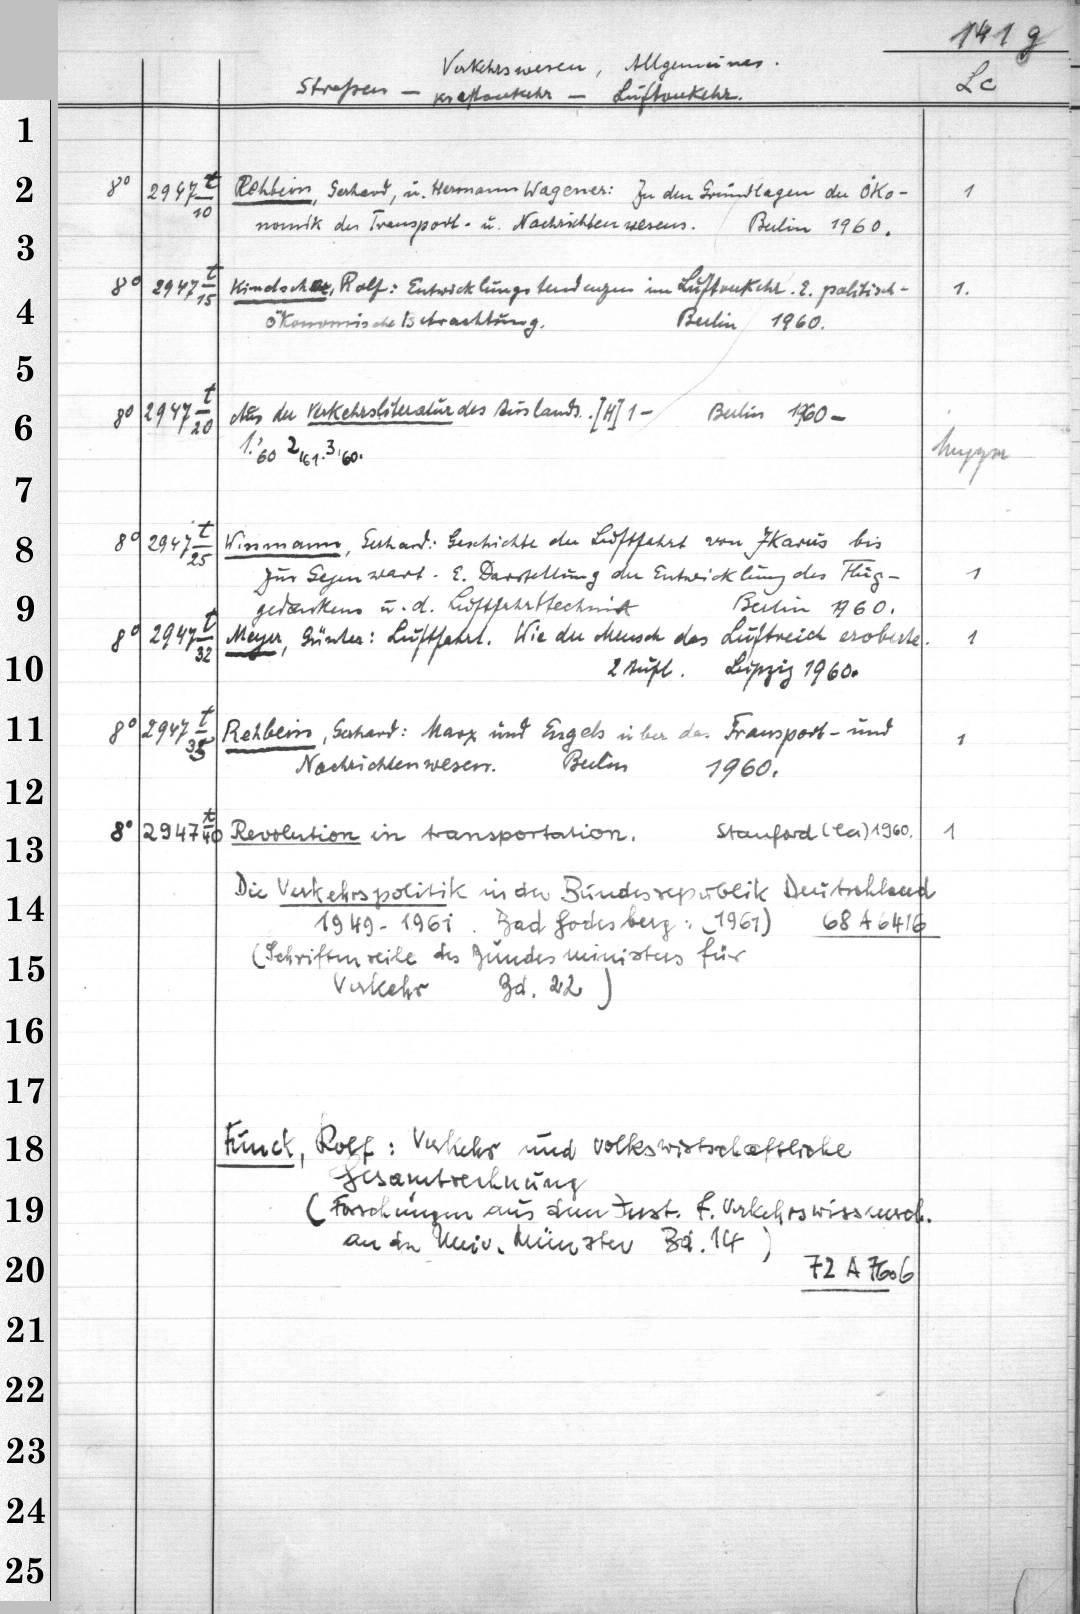 141 g
Verkehrswesen, Allgemeines.
Lc
Strassen — Kraftverkehr — Luftverkehr.
1
2
8° 2947 t/10 Rehbein, Gerhard, u. Hermann Wagener: Zu den Grundlagen der Öko- 1
nomik des Transport- u. Nachrichtenwesens. Berlin 1960.
3
8° 2947 t/15 Kindscher, Rolf: Entwicklungstendenzen im Luftverkehr. E. politisch- 1.
4
ökonomische Betrachtung. Berlin 1960.
5
6
8° 2947 t/20 Aus der Verkehrsliteratur des Auslands. [H] 1— Berlin 1960—
1.'60 2,'61. 3,'60.
7
8
8° 2947 t/25 Wissmann, Gerhard: Geschichte der Luftfahrt von Ikarus bis
zur Gegenwart. E. Darstellung der Entwicklung des Flug- 1
9
gedankens u. d. Luftfahrttechnik Berlin 1960.
8° 2947 t/32 Meyer, Günter: Luftfahrt. Wie der Mensch das Luftreich eroberte. 1
10
2 Aufl. Leipzig 1960.
11
8° 2947 t/35 Rehbein, Gerhard: Marx und Engels über das Transport- und 1
Nachrichtenwesen. Berlin 1960.
12
8° 2947 t/40 Revolution in transportation. Stanford (Ca) 1960. 1
13
Die Verkehrspolitik in der Bundesrepublik Deutschland
14
1949-1961. Bad Godesberg: (1961) 68 A 6416
15
(Schriftenreihe des Bundesministers für
Verkehr Bd. 22)
16
17
18
Funck, Rolf: Verkehr und volkswirtschaftliche
Gesamtrechnung
19
(Forschungen aus dem Inst. f. Verkehrswissensch.
an der Univ. Münster Bd. 14)
20
72 A 7606
21
22
23
24
25